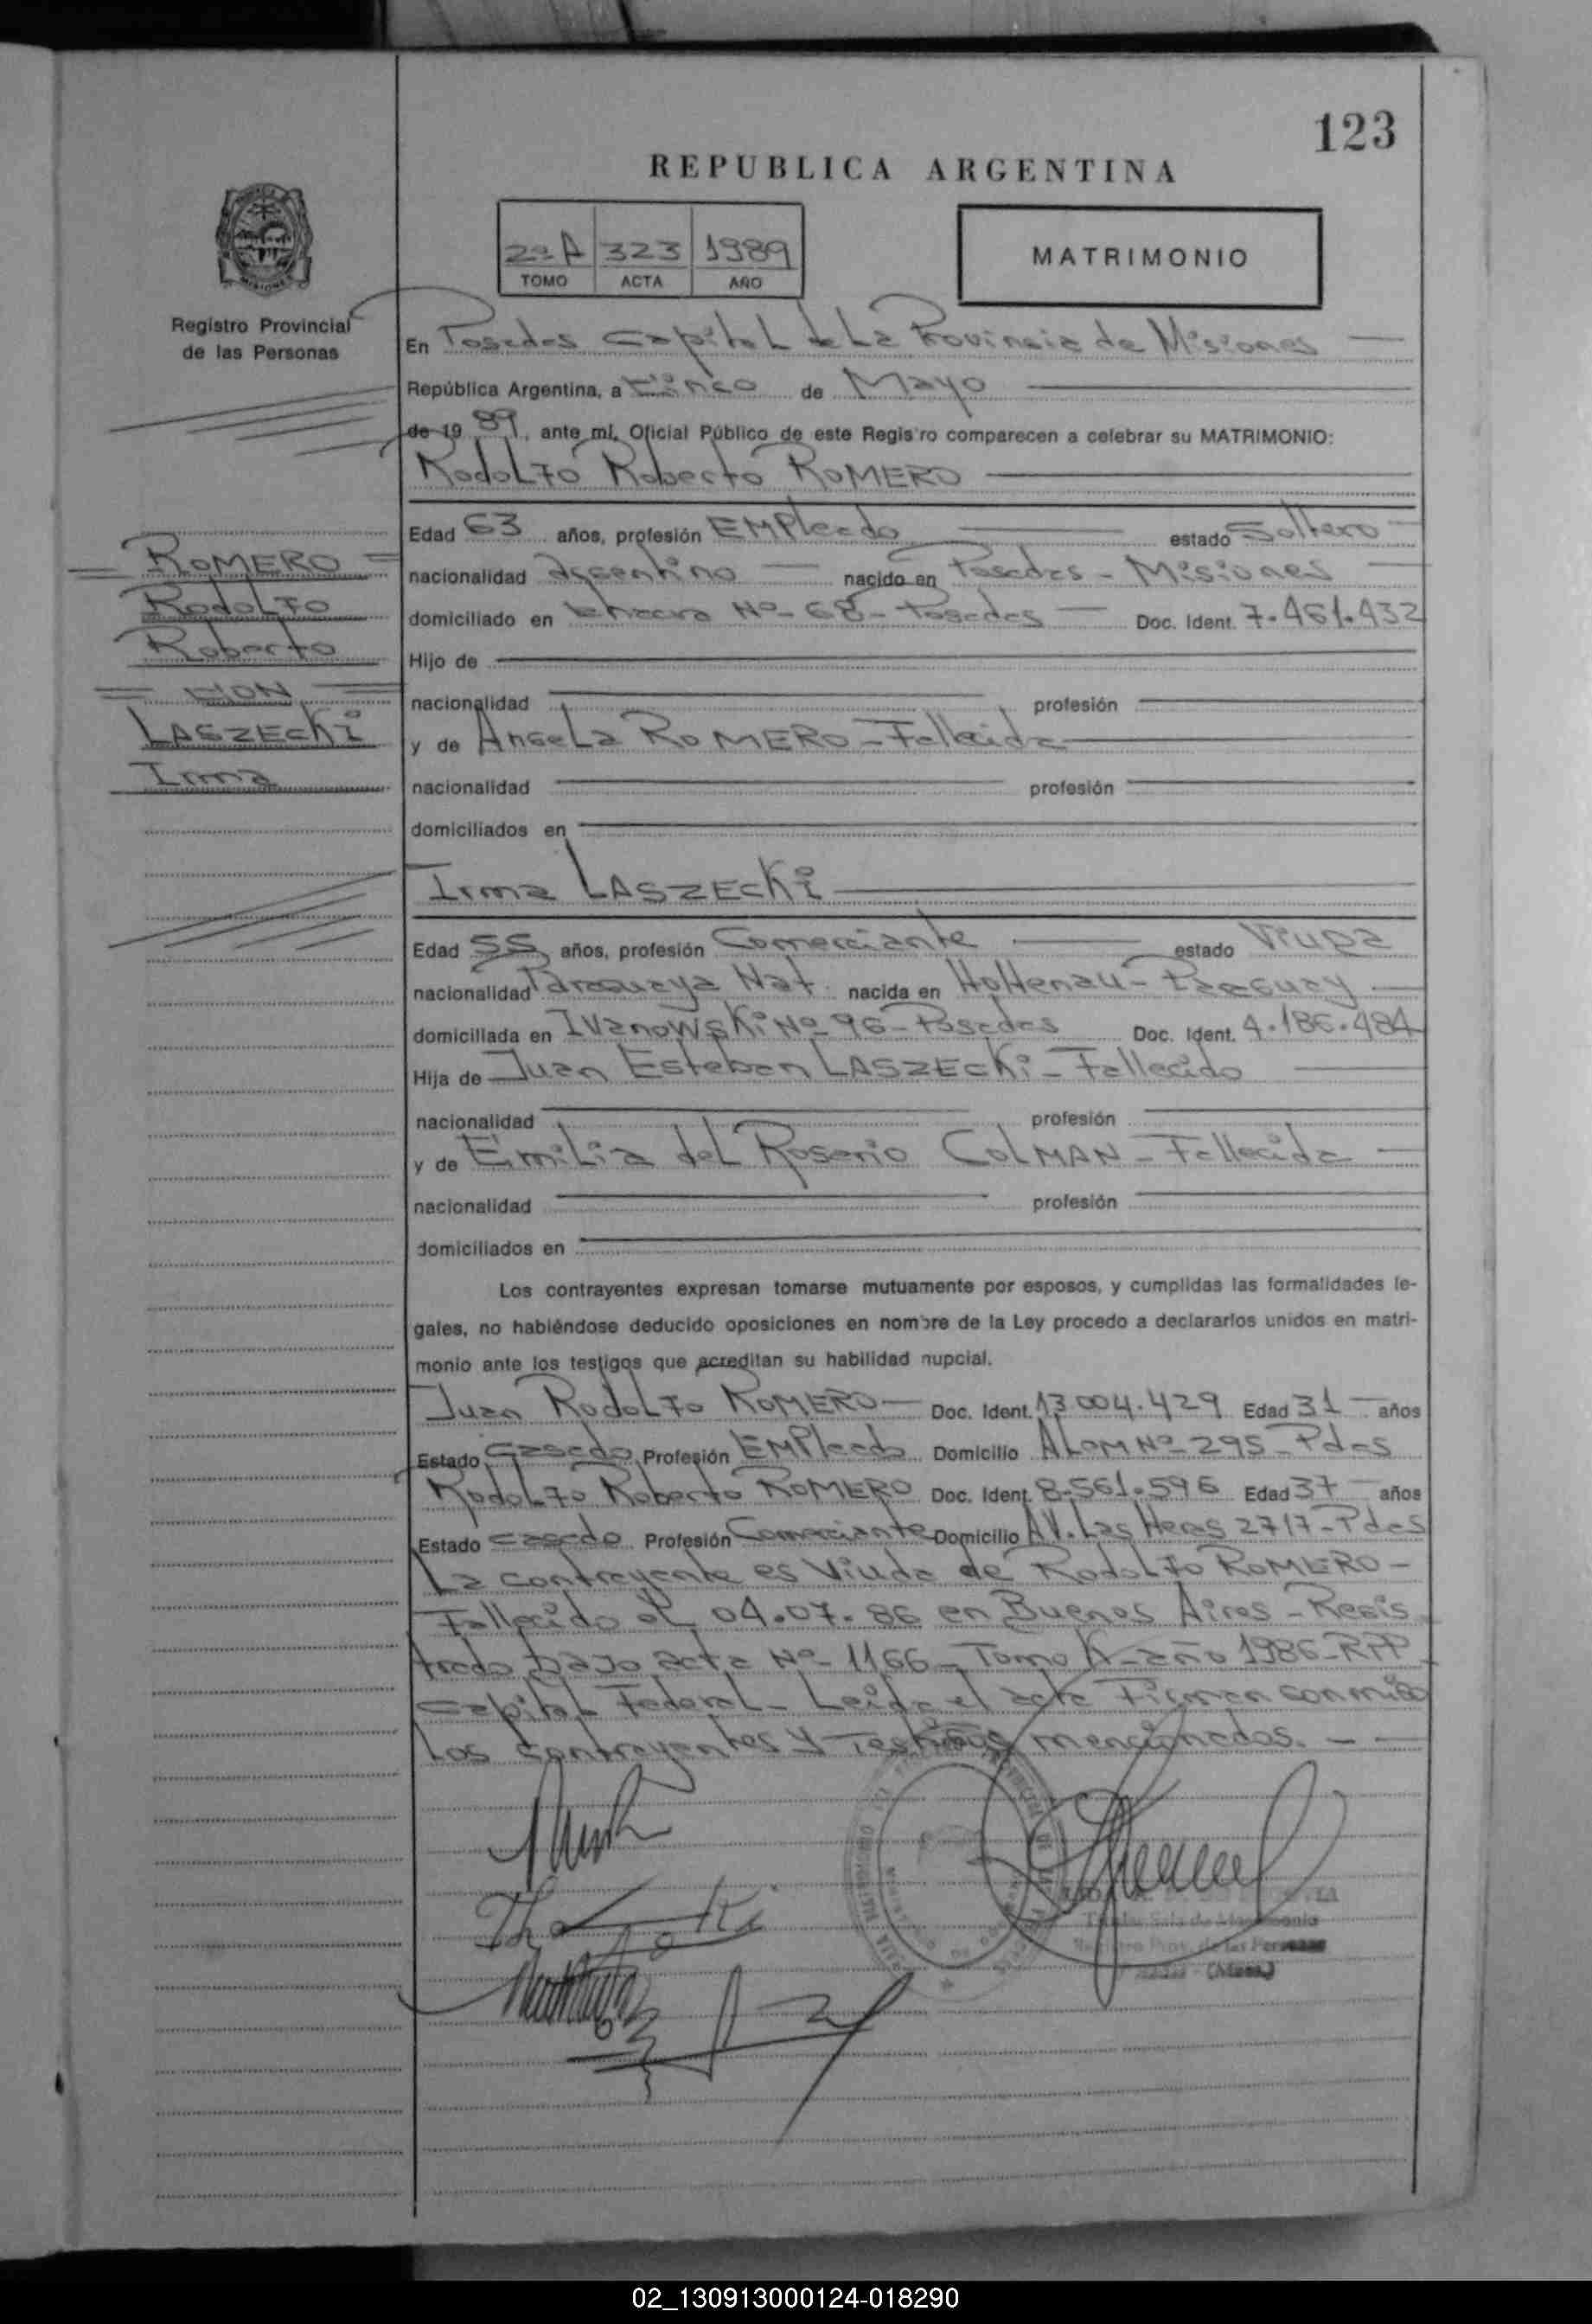 123
REPUBLICA ARGENTINA
2º A 323 1989
TOMO ACTA AÑO
MATRIMONIO
Registro Provincial
de las Personas
En Posadas Capital de La Provincia de Misiones
República Argentina, a Cinco de Mayo
de 19 89, ante mí, Oficial Público de este Registro comparecen a celebrar su MATRIMONIO:
Rodolfo Roberto ROMERO
Edad 63 años, profesión Empleado estado Soltero
nacionalidad Argentino nacido en Posadas - Misiones
domiciliado en Chacra Nº 68 - Posadas Doc. Ident. 7.461.432
Hijo de
nacionalidad profesión
y de Angela ROMERO - Fallecida
nacionalidad profesión
domiciliados en
ROMERO
Rodolfo
Roberto
CON
LASZECKI
Irma
Irma LASZECKI
Edad 55 años, profesión Comerciante estado Viuda
nacionalidad Paraguaya Nat. nacida en Hohenau - Paraguay
domiciliada en Ivanowski Nº 96 - Posadas Doc. Ident. 4.186.484
Hija de Juan Esteban LASZECKI - Fallecido
nacionalidad profesión
y de Emilia del Rosario COLMAN - Fallecida
nacionalidad profesión
domiciliados en
Los contrayentes expresan tomarse mutuamente por esposos, y cumplidas las formalidades le-
gales, no habiéndose deducido oposiciones en nombre de la Ley procedo a declararlos unidos en matri-
monio ante los testigos que acreditan su habilidad nupcial.
Juan Rodolfo ROMERO - Doc. Ident. 13.004.429 Edad 31 años
Estado Casado Profesión Empleado Domicilio ALEM Nº 295 - Pdas
Rodolfo Roberto ROMERO Doc. Ident. 8.561.596 Edad 37 años
Estado Casado Profesión Comerciante Domicilio AV. Las Heras 2717 - Pdas
La contrayente es Viuda de Rodolfo ROMERO -
Fallecido el 04.07.86 en Buenos Aires - Regis
trado bajo acta Nº 1166 - Tomo K - año 1986 - RPP
Capital Federal - Leída el acta Firman conmigo
los contrayentes y Testigos mencionados. - -
Registro Prov. de las Personas
(Mnes.)
02_130913000124-018290